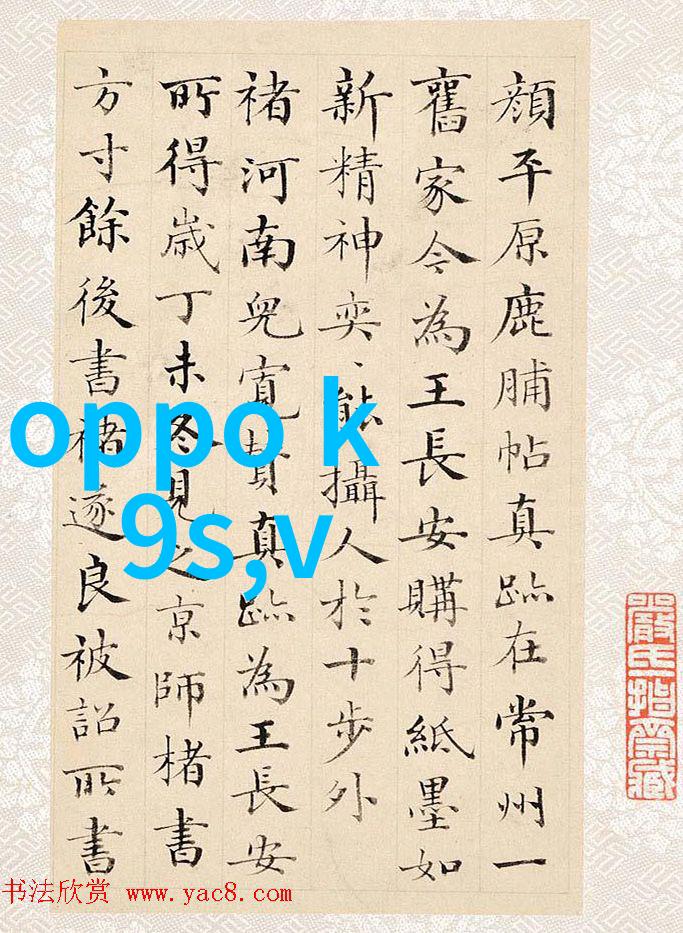 顏平原鹿脯帖真跡在常州一
舊家今為王長安購得紙墨如
新精神奕、能攝人於十步外
褚河南兒寬贊真跡為王長安
所得歲丁未冬見之京師楮書
方寸餘後書褚遂良被詔所書
oppo k
9s,v
书法欣赏 www.yac8.com